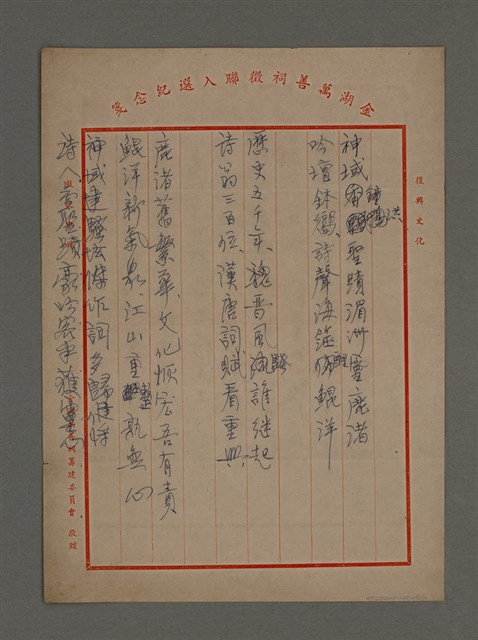 金湖萬善祠徵聯入選紀念箋
復興文化
神域鐘聖蹟湄洲靈鹿渚
吟壇鉢響詩聲海鯤洋
歷史五千年、魏晉風騷誰繼起
詩翁三百位、漢唐詞賦看重興
鹿渚舊繁華、文化惟宏吾有責
鯤洋新氣象、江山重整孰無心
神域建騷壇傑作詞多歸
詩人聖蹟豪吟客
建委員會敬贈